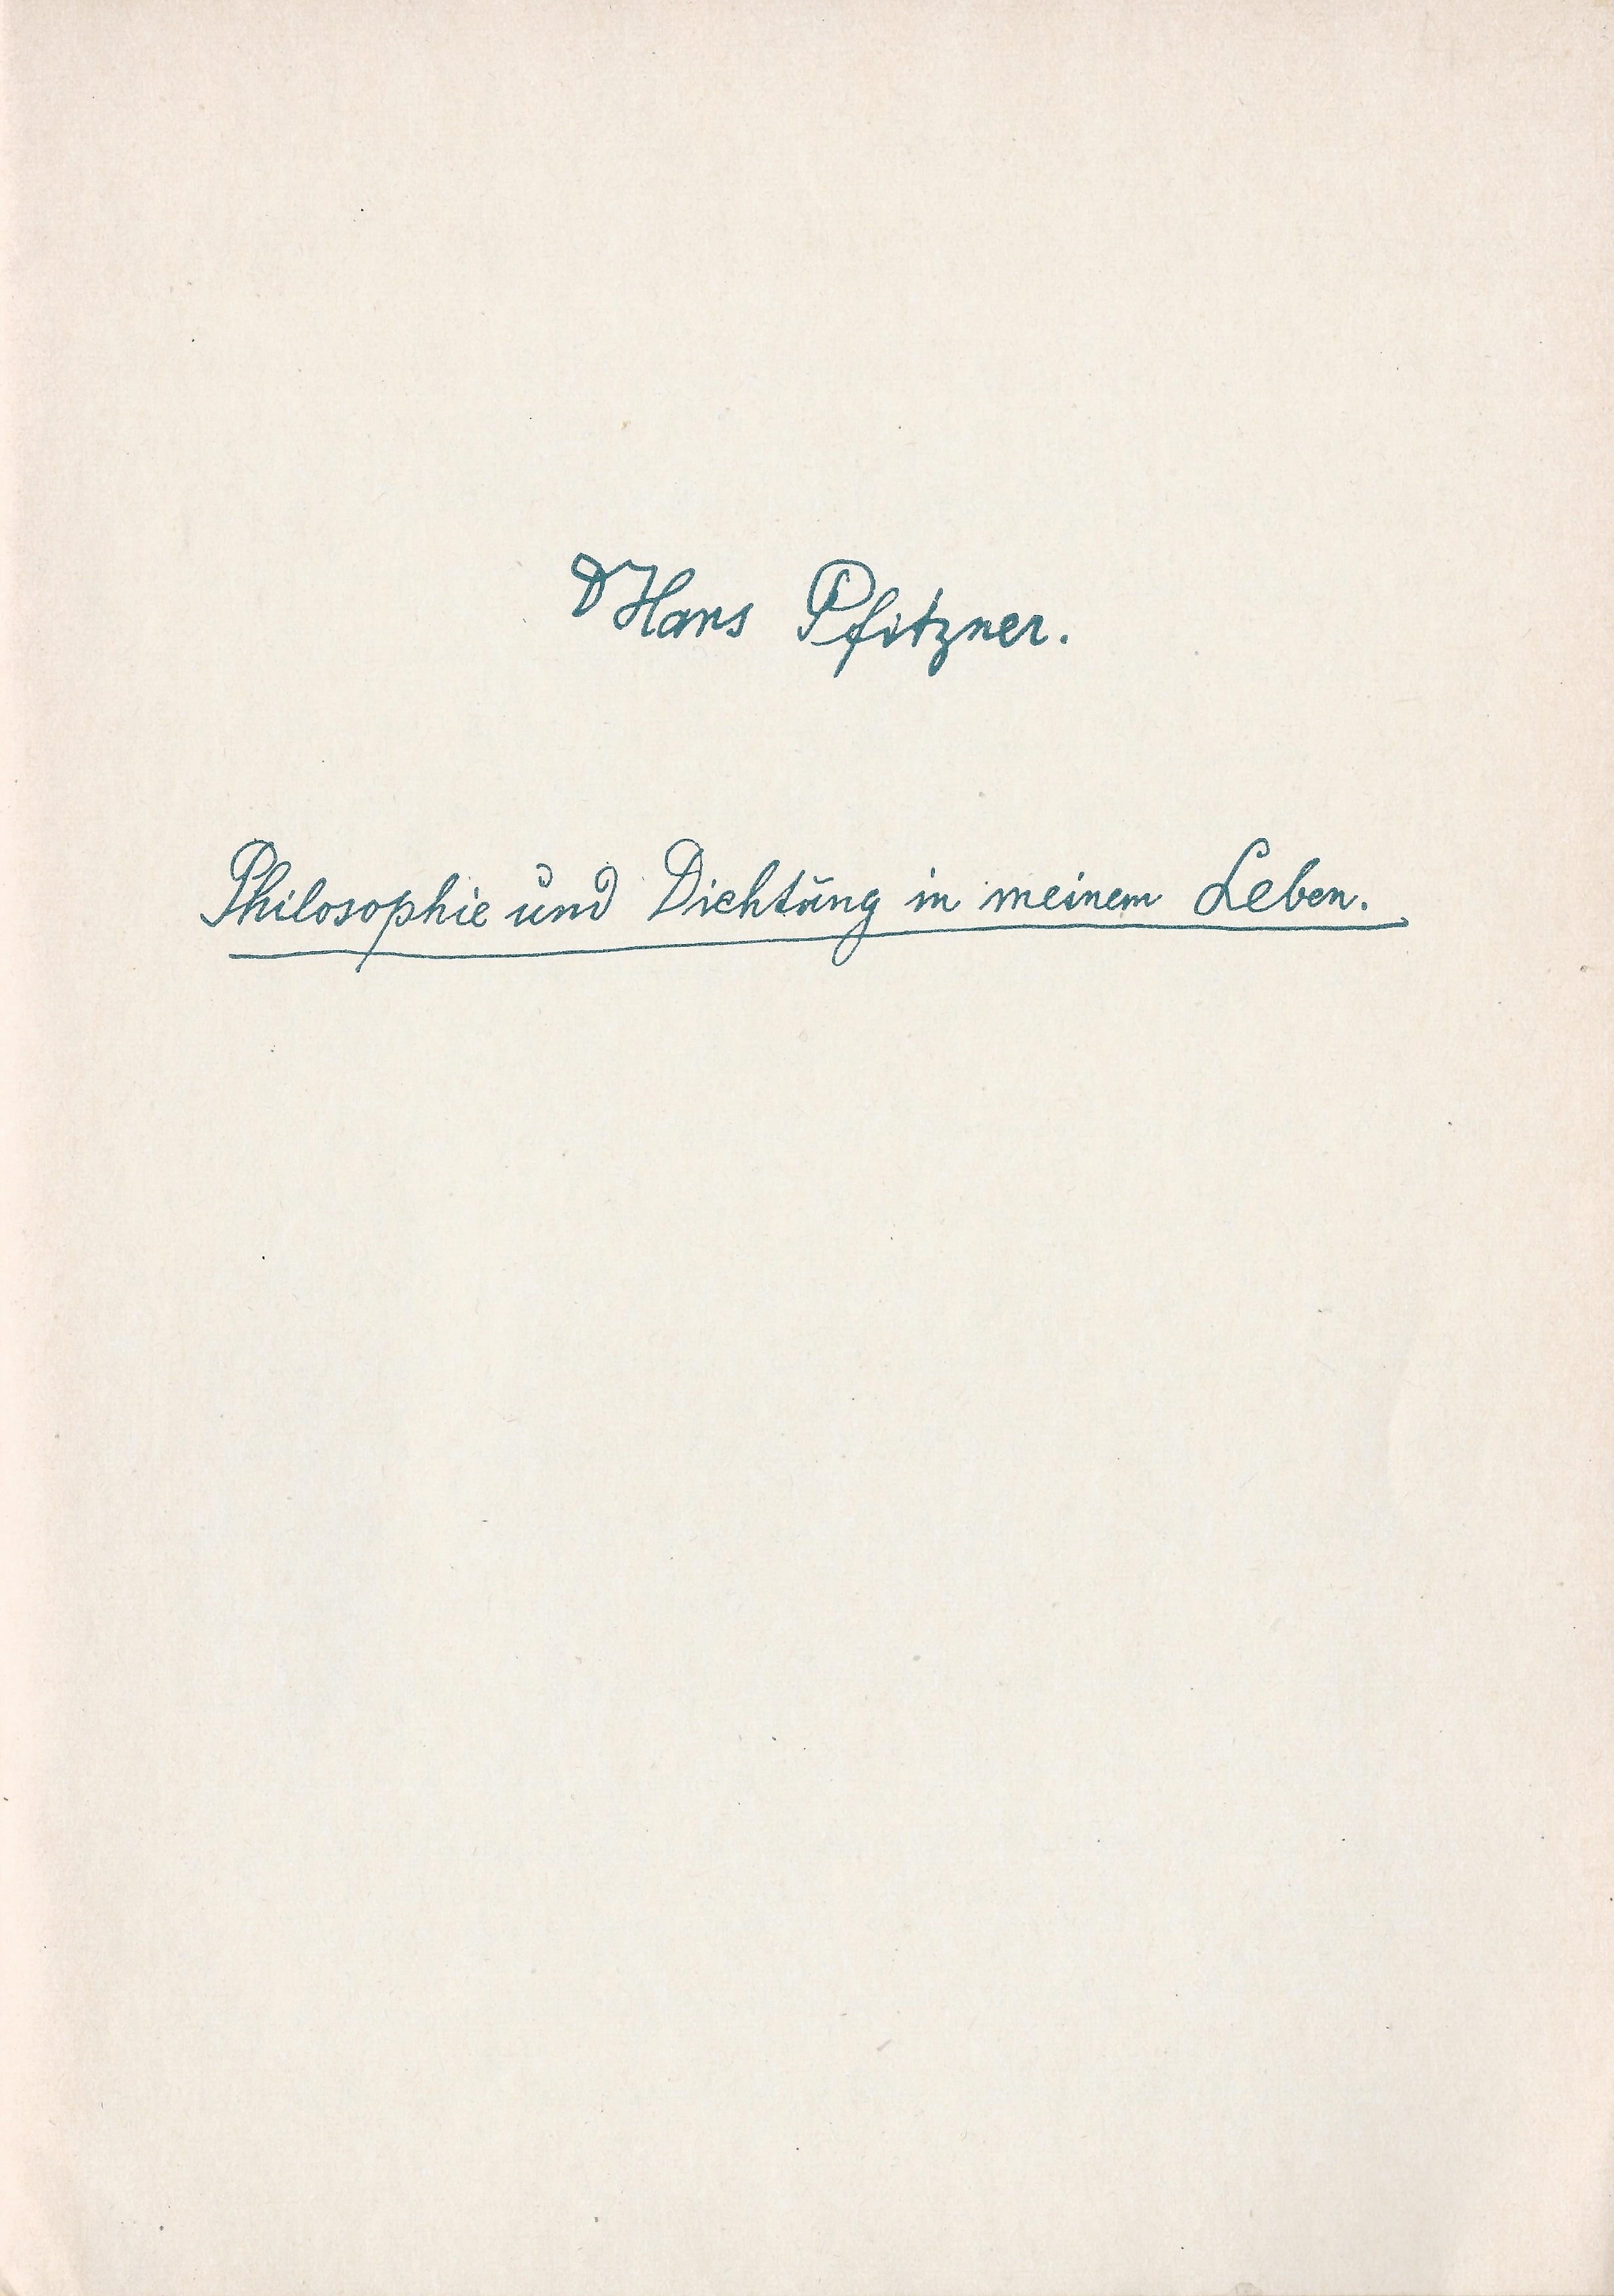 D Hans Pfitzner.
Philosophie und Dichtung in meinem Leben.